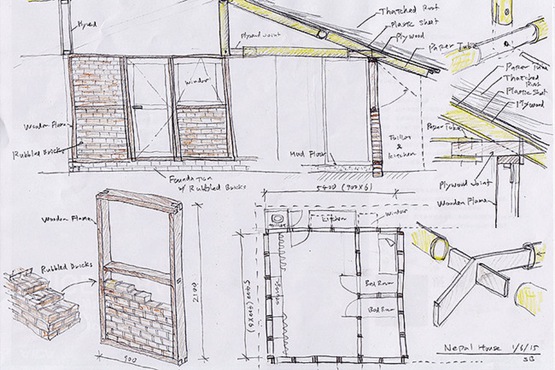 Plywood
Plywood Joint
Thatched Roof
Plastic Sheet
Plywood
Paper Tube
Window
Wooden Flame
Rubbled Bricks
Mud Floor
Toilet
&
kitchen
Foundation
of Rubbled Bricks
Paper Tube
Thatched
Plastic Sheet
Plywood
Paper Tube
Plywood Joint
Wooden Flame
Wooden Flame
Rubbled Bricks
2100
900
5400 (900x6)
kitchen
Window
Bed Room
Bed Room
Nepal House 1/6/15
SB